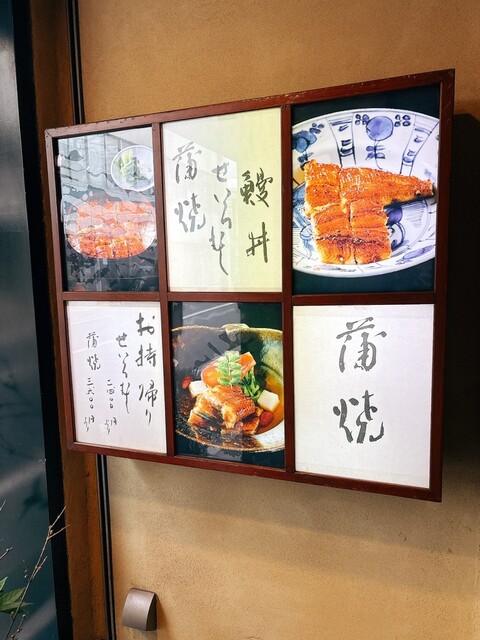 鰻丼
せいろむし
蒲焼
お持帰り
せいろむし
二四〇〇円より
蒲焼
三六〇〇円より
蒲焼